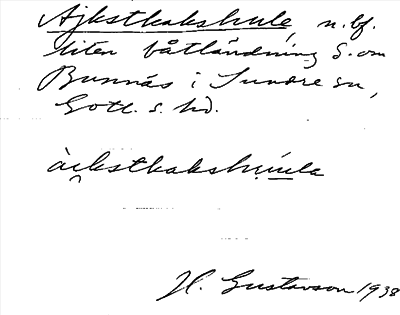 Ajkstkakshule, n. bf.
liten båtländning S. om
Bunnäs i Sundre sn,
Gotl. s. hd.
àikstkakshùula
H. Gustavson 1938